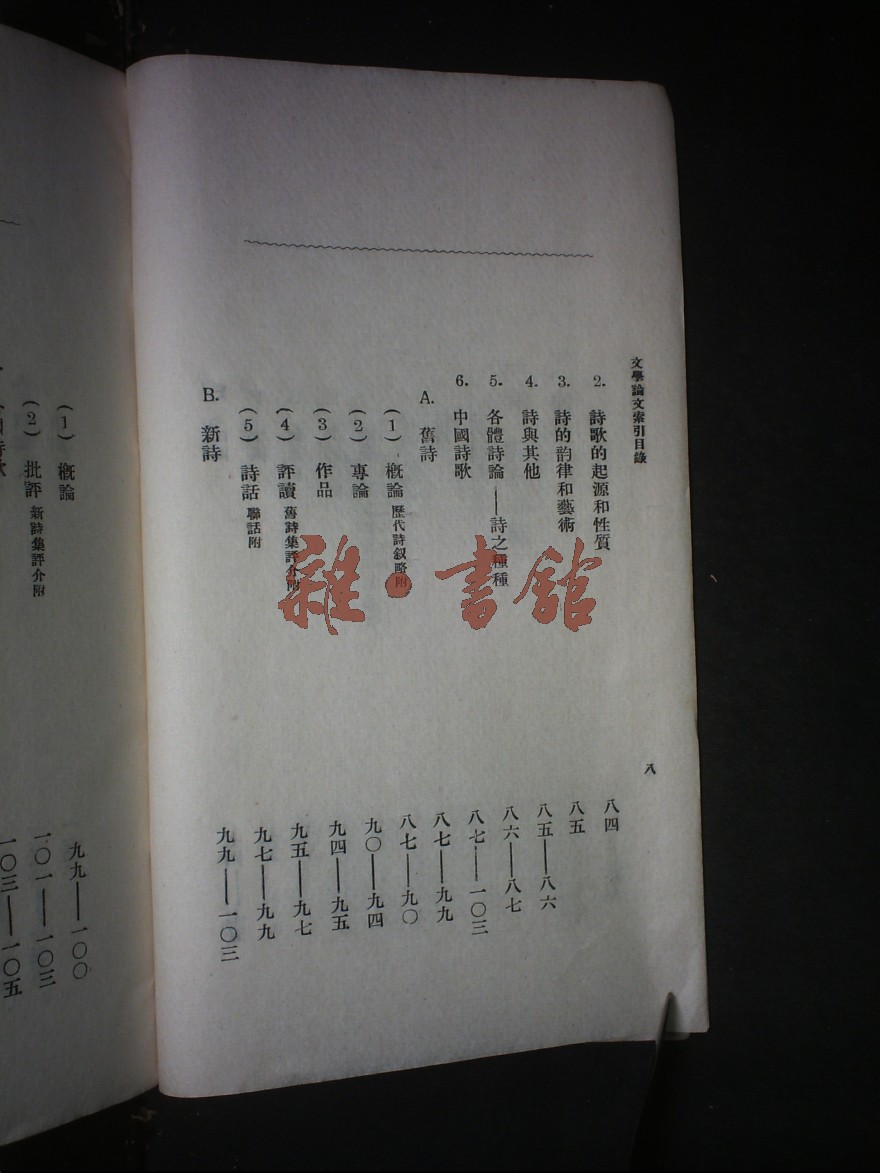 文學論文索引目錄 八
2. 詩歌的起源和性質 八四
3. 詩的韵律和藝術 八五
4. 詩與其他 八五——八六
5. 各體詩論——詩之種種 八六——八七
6. 中國詩歌 八七——一〇三
A. 舊詩 八七——九九
(1) 概論 歷代詩叙略附 八七——九〇
(2) 專論 九〇——九四
(3) 作品 九四——九五
(4) 評讀 舊詩集評介附 九五——九七
(5) 詩話 聯話附 九七——九九
B. 新詩 九九——一〇三
(1) 概論 九九——一〇〇
(2) 批評 新詩集評介附 一〇一——一〇三
一〇三——一〇五
雜·書館